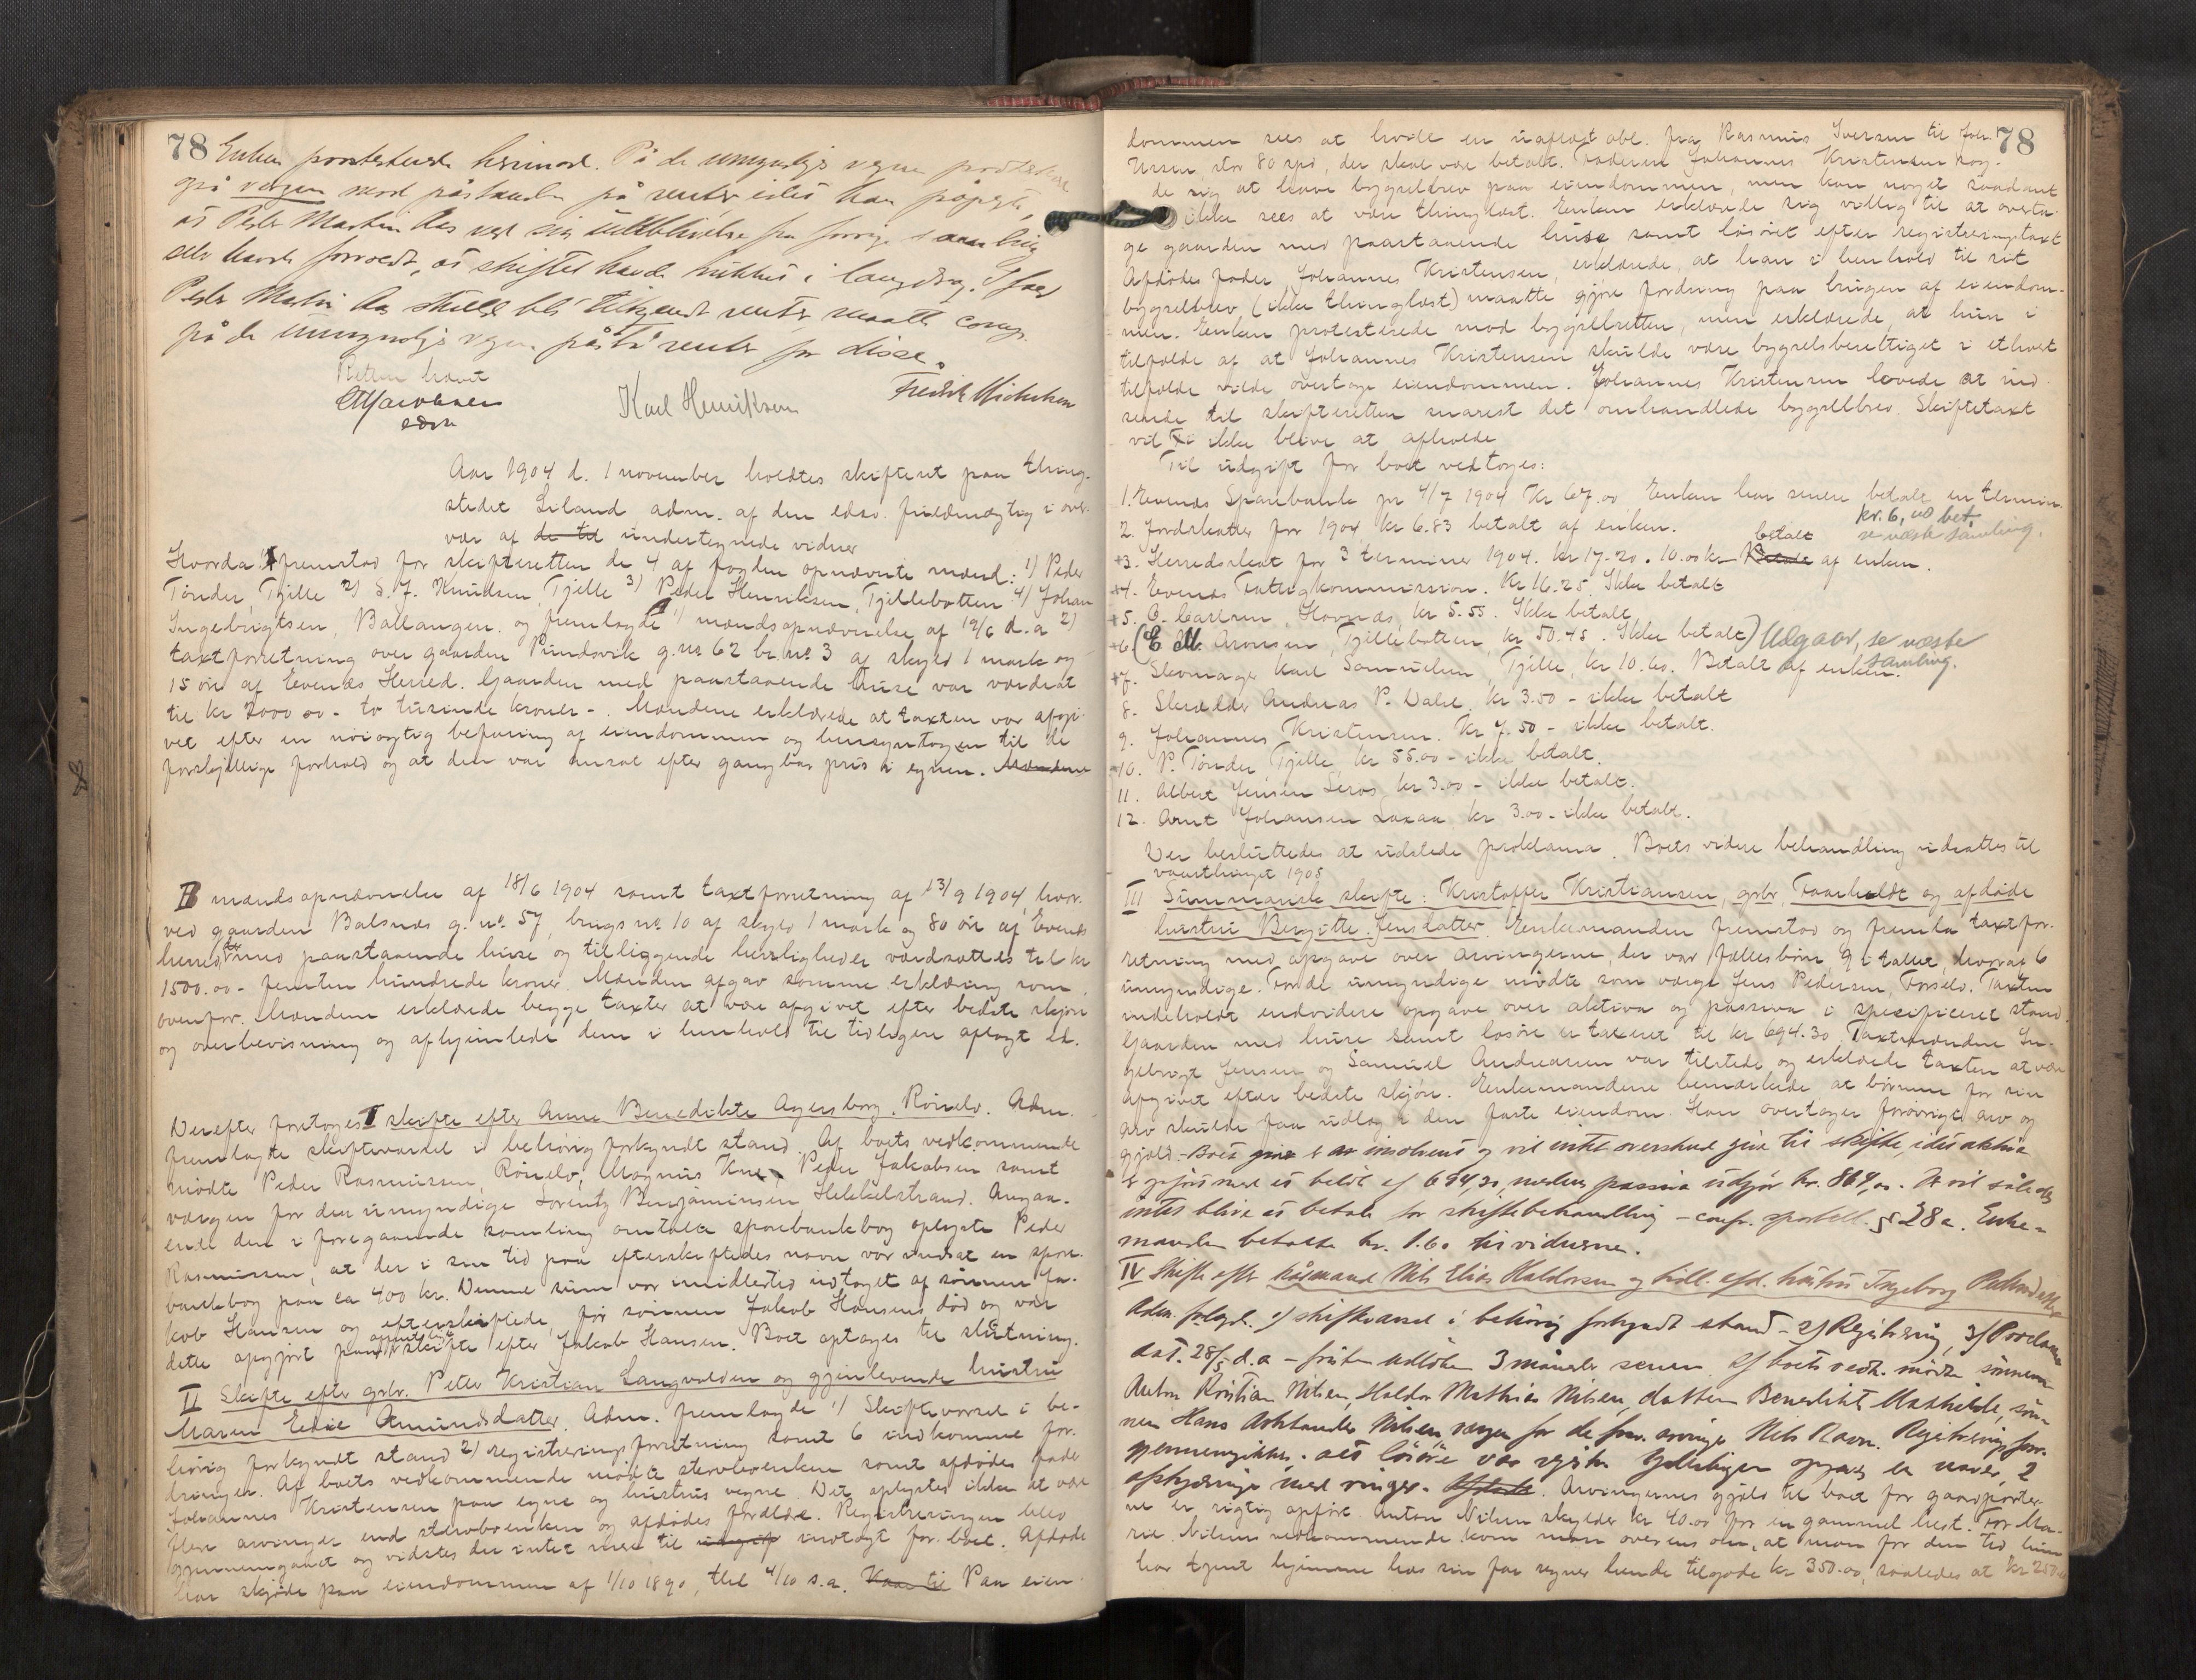 78 Enken protesterede herimod. På de umyndiges vegne protesterede
også vergen mod påstanden på renter idet han påpegte,
at Peder Martin Aas ved sin udeblivelse fra forrige samling
selv havde forvoldt, at skiftet havde trukket i langdrag. Ifald
Peder Martin Aas skulde bli tilkjendt renter, maatte
på de umyndiges vegne påstå renter for disse.
Retten hævet
Karl Henriksen
Fredrik Michelsen
Aar 1904 d. 1 november holdtes skifteret paa thing-
stedet Liland adm. af den edsv. fuldmægtig i over-
vær af de til undertegnede vidner
Hvorda I fremstod for skifteretten de 4 af fogden opnævnte mænd: 1) Peder
Tønder, Tjille 2) S. J. Knudsen, Tjelle 3) Peder Henriksen, Tjillebotten 4) Johan
Ingebrigtsen, Ballangen. og fremlagde 1) mændsopnævnelse af 19/6 d. a 2)
taxtforretning over gaarden Pundsvik g. no 62 br. no 3 af skyld 1 mark og
15 øre af Evenæs Herred. Gaarden med paastaaende huse var værdsat
til kr 2000.00 - to tusinde kroner -. Mændene erklærede at taxten var afgi-
vet efter en nøiagtig befaring af eiendommen og hensyntagen til de
forskjellige forhold og at den var ansat efter gangbar pris i egnen. Mændene
B mændsopnævnelse af 18/6 1904 samt taxtforretning af 13/9 1904, hvor-
ved gaarden Balsnæs g. no. 57, brugs no 10 af skyld 1 mark og 80 øre af Evenæs
herred med paastaaende huse og tilliggende herligheder værdsattes til kr
1500.00 - femten hundrede kroner. Mænden afgav samme erklæring som
ovenfor. Mændene erklærede begge taxter at være afgivet efter bedste skjøn
og overbevisning og afhjemlede dem i henhold til tidligere aflagt ed.
Derefter foretoges I skifte efter Anna Benedikte Agersborg, Røinelv. Adm.
fremlagte skiftevarsel i behørig forkyndt stand. Af boets vedkommende
mødte Peder Rasmussen, Røinelv, Magnus Kne, Peder Jakobsen samt
værgen for den umyndige Lorentz Benjaminsen Hekkelstrand. Angaa-
ende den i foregaaende samling omtalte sparebankbog oplyste Peder
Rasmussen, at der i sin tid paa efterskiftedes navn var indsat en spare-
bankbog paa ca 400 kr. Denne sum var imidlertid udtaget af sønnen Ja-
kob Hansen og efterskiftede, før sønnen Jakob Hansens død og var
dette opgjort paa skifte efter Jakob Hansen. Boet optages til slutning.
II Skifte efter grbr. Peter Kristian Langvolden og gjenlevende hustru
Maren Edie Amundsdatter. Adm. fremlagde 1) Skiftevarsel i be-
hørig forkyndt stand 2) registreringsforretning samt 6 indkomne for-
dringer. Af boets vedkommende mødte stervboenken samt afdødes fader
Johannes Kristensen paa egne og hustrus vegne. Det oplystes ikke at være
flere arvinger end stervboenken og afdødes forældre. Registreringen blev
gjennemgaaet og vidstes der intet mere til udgift indtægt for boet. Afdøde
har skjøde paa eiendommen af 1/10 1890, thl. 4/10 s. a. Kaar til Paa eien-
78
dommen sees at hvile en uaflæst obl. fra Rasmus Iversen til Joh.
Ursin, stor 80 spd, der skal være betalt. Faderen Johannes Kristensen sag-
de sig at have bygselbrev paa eiendommen, men kan noget saadant
ikke sees at være thinglæst. Enken erklærede sig villig til at overta-
ge gaarden med paastaaende huse samt løsøret efter registreringstaxt
Afdødes fader, Johannes Kristensen, erklærede, at han i henhold til sit
bygselbrev, (ikke thinglæst) maatte gjøre fordring paa brugen af eiendom-
men. Enken protesterede mod bygselretten, men erklærede, at hun i
tilfælde af at Johannes Kristensen skulde være bygselsberettiget i ethvert
tilfælde vilde overtage eiendommen. Johannes Kristensen lovede at ind-
sende til skifteretten snarest det omhandlede bygselbrev. Skiftetaxt
vil ikke blive at afholde
Til udgift for boet vedtoges:
1. Evenæs Sparebank pr 4/7 1904 Kr 67.00 Enken har senere betalt en termin
kr. 6,00 bet.
2. Jordskatter for 1904 kr 6.83 betalt af enken.
se næste samling.
3. Herredsskat for 3 terminer 1904. kr 17.20. 10.00 kr betalt af enken.
4. Evenæs Fattigkommission. Kr 16.25. Ikke betalt
5. C. Carlsen, Hovnæs, kr 5.55. Ikke betalt
6. (E M. Aronsen, Tjillebotten, kr 50.45. Ikke betalt) Udgaar, se næste
samling.
7. Skomager Karl Samuelsen, Tjille, kr 10.60. Betalt af enken.
8. Skrædder Andreas P. Dahl. kr 3.50 - ikke betalt
9. Johannes Kristensen. Kr 7.50 - ikke betalt.
10. P. Tønder, Tjille, kr 55.00 - ikke betalt.
11. Albert Jensen Serøs kr 3.00 - ikke betalt.
12. Arnt Johansen Laxaa kr 3.00 - ikke betalt.
Der besluttedes at udstede proklama. Boets videre behandling udsattes til
vaarthinget 1905
III Summarisk skifte: Kristoffer Kristiansen, grbr, Taarholdt og afdøde
hustru Birgitte Jensdatter. Enkemanden fremstod og fremla taxtfor-
retning med opgave over arvingerne der var fællesbørn 9 i tallet, hvoraf 6
umyndige. For de umyndige mødte som værge Jens Pedersen, Forselv. Taxten
indeholdt endvidere opgave over aktiva og passiva i specificeret stand.
Gaarden med huse samt løsøre er taxeret til kr 694.30. Taxtmændene In-
gebrigt Jensen og Samuel Andreasen var tilstede og erklærte taxten at være
afgivet efter bedste skjøn. Enkemandene bemærkede at børnene for sin
arv skulde faa udlæg i den faste eiendom. Han overtager forøvrigt arv og
gjæld. Boet er insolvent og vil intet overskud give til skifte, idet aktiva
er opført med et beløb af 694,30, medens passiva udgjør kr. 869,00. Der vil således
intet blive at betale for skiftebehandling - conf. sportell. § 28 a. Enke-
manden betalte kr. 1.60 til vidnerne.
IV Skifte efter kårmand Nils Elias Haldorsen og tidl. afd. hustru Ingeborg
Adm. fremla. 1) skiftevarsel i behørig forkyndt stand - 2) Registrering, 3) Proclama
dat. 28/5 d. a - fristen udløben 3 måneder senere. Af boets vedk. mødte sønnerne
Anton Kristian Nilsen, Haldor Mathias Nilsen, datteren Benedikte Mathilde, søn-
nen Hans Nilsen, værge for de arvinge Nils Ravn. Registreringsforr.
gjennemgikkes. alt løsøre var 2
med ringer. Arvingernes gjæld til boet for gaardparter-
ne er rigtig opført. Anton Nilsen skylder kr 40.00 for en gammel hest. For Ma-
rie Nilsens vedkommende kom man overens om, at man for den tid hun
har tjent hjemme hos sin far regner hende tilgode kr 350.00, saaledes at kr 250.